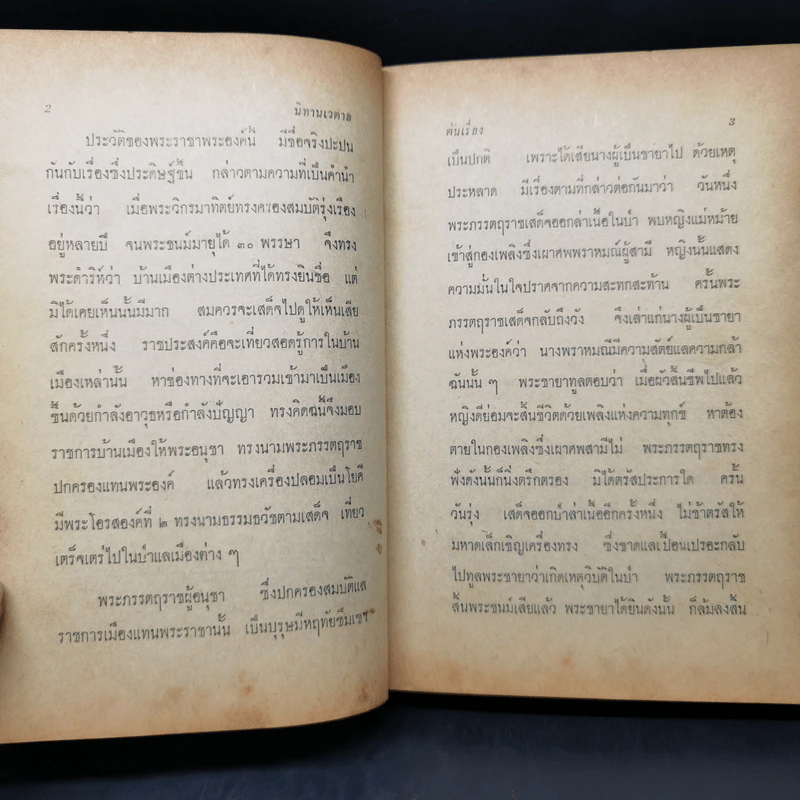 2
นิทานเวตาล
ประวัติของพระราชาพระองค์นี้ มีชื่อจริงปะปน
กันกับเรื่องซึ่งประดิษฐ์ขึ้น กล่าวตามความที่เป็นคำนำ
เรื่องนี้ว่า เมื่อพระวิกรมาทิตย์ทรงครองสมบัติรุ่งเรือง
อยู่หลายปี จนพระชนม์มายุได้ ๓๐ พรรษา จึงทรง
พระดำริห์ว่า บ้านเมืองต่างประเทศที่ได้ทรงยินชื่อ แต่
มิได้เคยเห็นนั้นมีมาก สมควรจะเสด็จไปดูให้เห็นเสีย
สักครั้งหนึ่ง ราชประสงค์คือจะเที่ยวสอดรู้การในบ้าน
เมืองเหล่านั้น หาช่องทางที่จะเอารวมเข้ามาเป็นเมือง
ขึ้นด้วยกำลังอาวุธหรือกำลังปัญญา ทรงคิดฉนี้จึงมอบ
ราชการบ้านเมืองให้พระอนุชา ทรงนามพระภรรตฤราช
ปกครองแทนพระองค์ แล้วทรงเครื่องปลอมเป็นโยคี
มีพระโอรสองค์ที่ ๒ ทรงนามธรรมธวัชตามเสด็จ เที่ยว
เตร็จเตร่ไปในป่าแลเมืองต่าง ๆ
พระภรรตฤราชผู้อนุชา ซึ่งปกครองสมบัติแล
ราชการเมืองแทนพระราชานั้น เป็นบุรุษมีหฤทัยซึมเซา
ต้นเรื่อง
3
เป็นปกติ เพราะได้เสียนางผู้เป็นชายาไป ด้วยเหตุ
ประหลาด มีเรื่องตามที่กล่าวต่อกันมาว่า วันหนึ่ง
พระภรรตฤราชเสด็จออกล่าเนื้อในป่า พบหญิงแม่หม้าย
เข้าสู่กองเพลิงซึ่งเผาศพพราหมณ์ผู้สามี หญิงนั้นแสดง
ความมั่นในใจปราศจากความสะทกสะท้าน ครั้นพระ
ภรรตฤราชเสด็จกลับถึงวัง จึงเล่าแก่นางผู้เป็นชายา
แห่งพระองค์ว่า นางพราหมณีมีความสัตย์แลความกล้า
ฉันนั้น ๆ พระชายาทูลตอบว่า เมื่อผัวสิ้นชีพไปแล้ว
หญิงดีย่อมจะสิ้นชีวิตด้วยเพลิงแห่งความทุกข์ หาต้อง
ตายในกองเพลิงซึ่งเผาศพสามีไม่ พระภรรตฤราชทรง
ฟังดังนั้นก็นิ่งตรึกตรอง มิได้ตรัสประการใด ครั้น
วันรุ่ง เสด็จออกป่าล่าเนื้ออีกครั้งหนึ่ง ไม่ช้าตรัสให้
มหาดเล็กเชิญเครื่องทรง ซึ่งขาดแลเปื้อนเปรอะกลับ
ไปทูลพระชายาว่าเกิดเหตุวิบัติในป่า พระภรรตฤราช
สิ้นพระชนม์เสียแล้ว พระชายาได้ยินดังนั้น ก็ล้มลงสิ้น